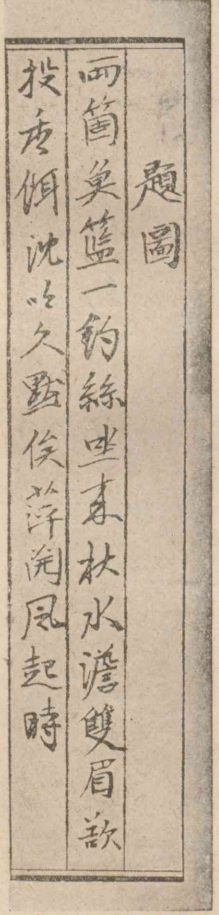 題圖
兩箇魚籃一釣絲坐來秋水澹雙眉欲
投香餌沈吟久默俟萍開風起時